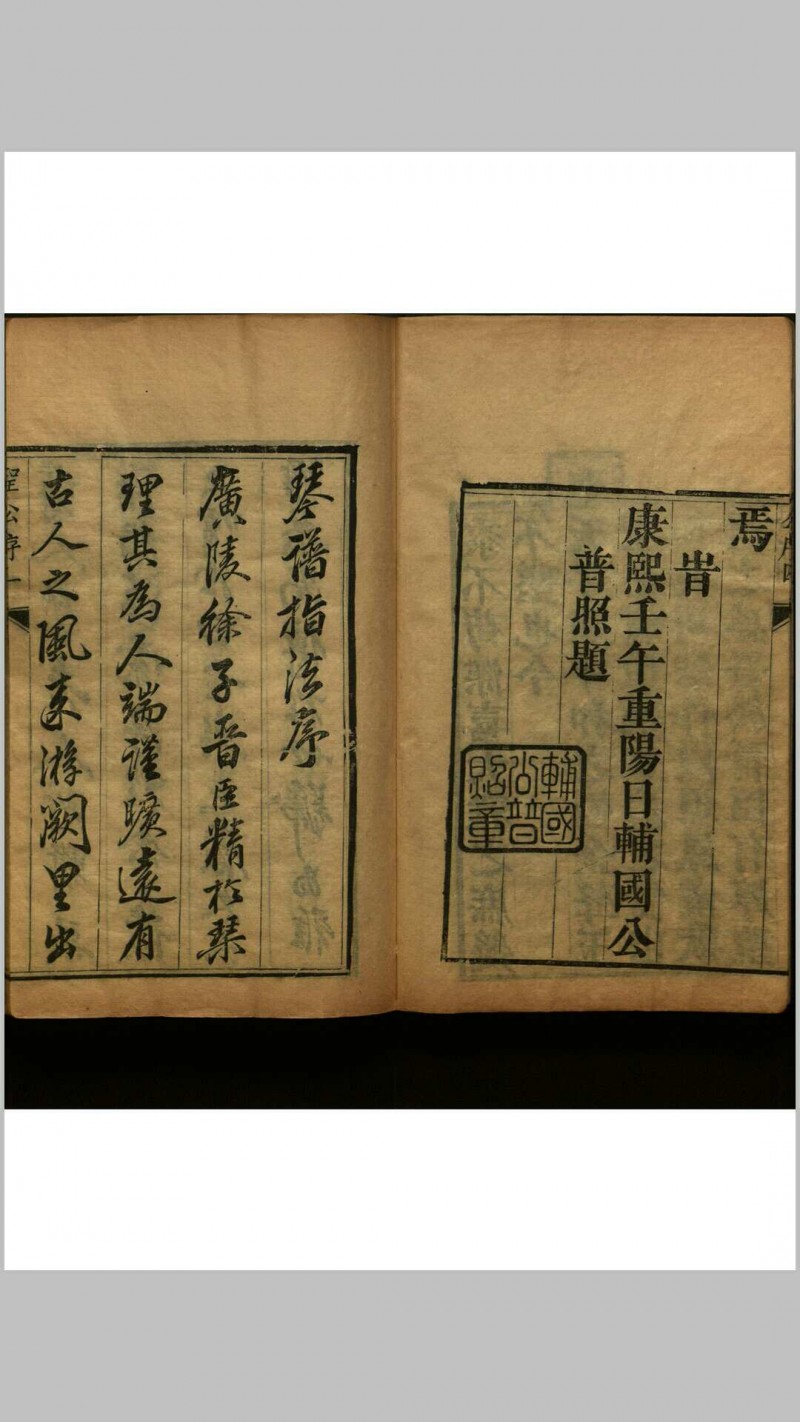 焉
旹
康熙壬午重陽日輔國公
普照題
輔國
尚普
琴譜指法序
廣陵徐子晋臣精於琴
理其為人端謹曠遠有
古人之風來游闕里出
聖公序一